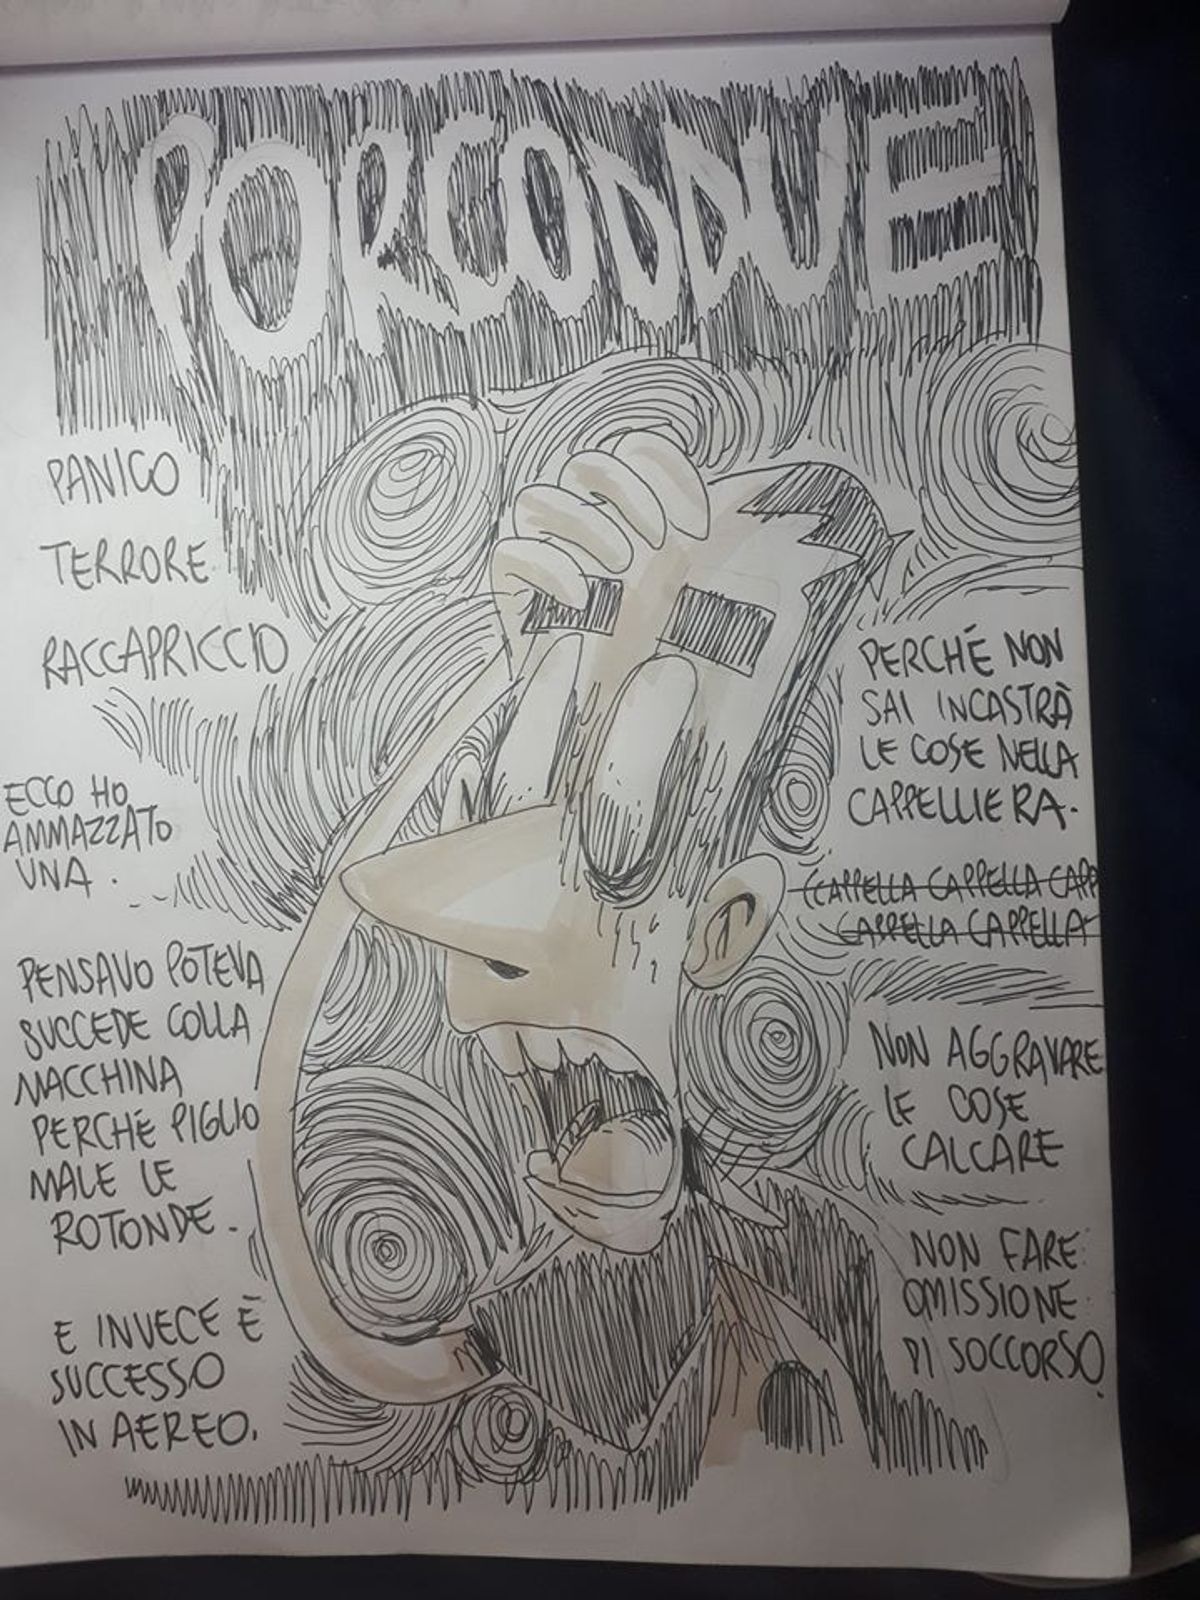 PORCODDUE
PANICO
TERRORE.
RACCAPRICCIO
ECCO HO
AMMAZZATO
UNA.
PENSAVO POTEVA
SUCCEDE COLLA
MACCHINA
PERCHÉ PIGLIO
MALE LE
ROTONDE.
E INVECE È
SUCCESSO
IN AEREO.
PERCHÉ NON
SAI INCASTRÀ
LE COSE NELLA
CAPPELLIERA.
(CAPPELLA CAPPELLA CAPP
CAPPELLA CAPPELLA
NON AGGRAVARE
LE COSE
CALCARE
NON FARE
OMISSIONE
DI SOCCORSO.